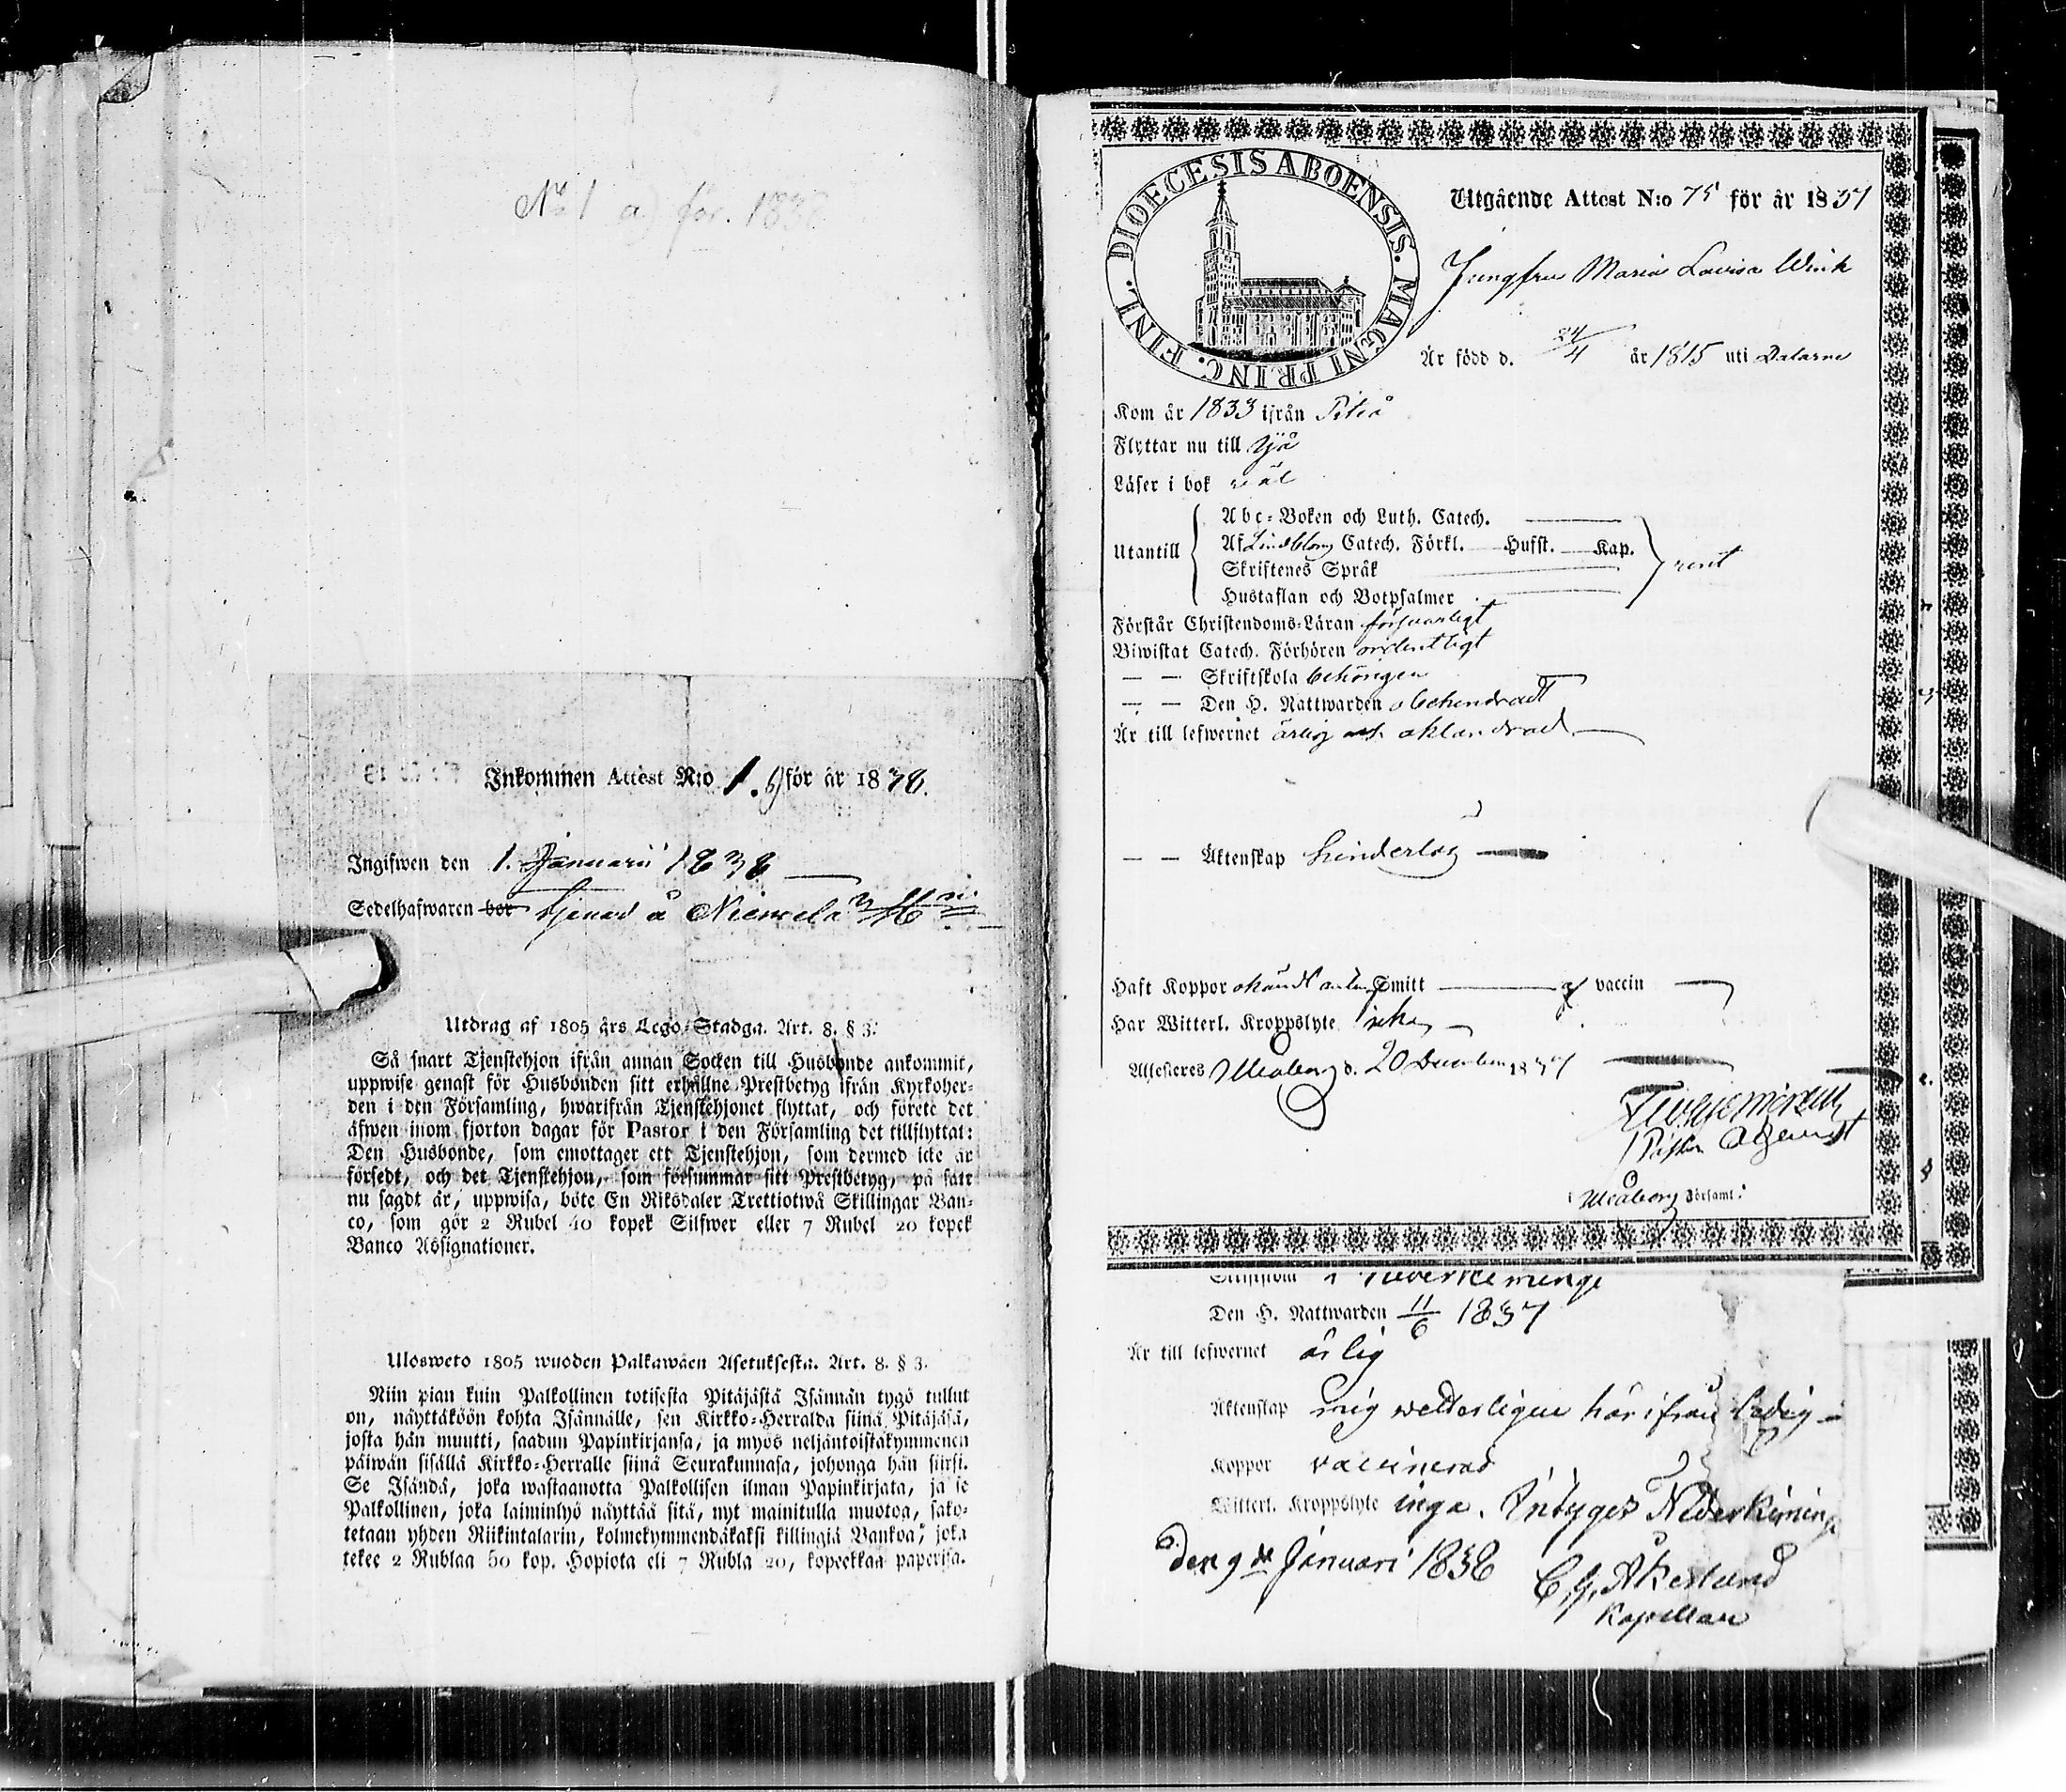 No 1 a) för. 1838
Inkommen Attest N:o 1. b) för år 1838.
Ingifwen den 1. Januarii 1838
Sedelhafwaren bor tjenar å Niemelä
Utdrag af 1805 års Lego-Stadga. Art. 8. § 3.
Så snart Tjenstehjon ifrån annan Socken till Husbonde ankommit,
uppwise genast för Husbonden sitt erhållne Prestbetyg ifrån Kyrkoher-
den i den Församling, hwarifrån Tjenstehjonet flyttat, och förete det
äfwen inom fjorton dagar för Pastor i den Församling det tillflyttat:
Den Husbonde, som emottager ett Tjenstehjon, som dermed icke är
försedt, och det Tjenstehjon, som försummar sitt Prestbetyg, på sätt
nu sagdt är, uppwisa, böte En Riksdaler Trettiotwå Skillingar Ban-
co, som gör 2 Rubel 40 kopek Silfwer eller 7 Rubel 20 kopek
Banco Assignationer.
Ulosweto 1805 wuoden Palkawäen Asetuksesta. Art. 8. § 3.
Niin pian kuin Palkollinen toisesta Pitäjästä Isännän tygö tullut
on, näyttäköön kohta Isännälle, sen Kirkko-Herralda siinä Pitäjäsä,
josta hän muutti, saadun Papinkirjansa, ja myös neljäntoistakymmenen
päiwän sisällä Kirkko-Herralle siinä Seurakunnasa, johonga hän siirsi.
Se Isändä, joka wastaanotta Palkollisen ilman Papinkirjata, ja se
Palkollinen, joka laiminlyö näyttää sitä, nyt mainitulla muotoa, sako-
tetaan yhden Riikintalarin, kolmekymmendäkaksi killingiä Bankoa, joka
tekee 2 Rublaa 50 kop. Hopiota eli 7 Rubla 20, kopeekkaa paperisa.
DIOECESIS ABOENSIS. MAGNI PRINC. FINL.
Utgående Attest N:o 75 för år 1837
Jungfru Maria Lovisa Wink
Är född d. 24/4 år 1815 uti Dalarne
Kom år 1833 ifrån Piteå
Flyttar nu till Ijå
Läser i bok wäl
Abc-Boken och Luth. Catech.
Utantill Af Lindbloms Catech. Förkl. Hufst. Kap. rent
Skriftenes Språk
Hustaflan och Botpsalmer
Förstår Christendoms-Läran försvarligt
Biwistat Catech. Förhören ordentligt
— — Skriftskola behörigen
— — Den H. Nattwarden obehindradt
Är till lefwernet ärlig och oklandrad
— — Äktenskap hinderlös
Haft Koppor okändt antingen Smitt eller vaccin
Har Witterl. Kroppslyte icke
Attesteres Uleåborg d. 20 December 1837
i Uleåborg Församl:
i Nederkiminge
Den H. Nattwarden 11/6 1837
Är till lefwernet ärlig
Äktenskap mig wetterligen härifrån ledig
Koppor vaccinerad
Witterl. Kroppslyte inga. Intyges Nederkiminge
den 9de Januari 1838 C. G. Åkerlund
Kapellan